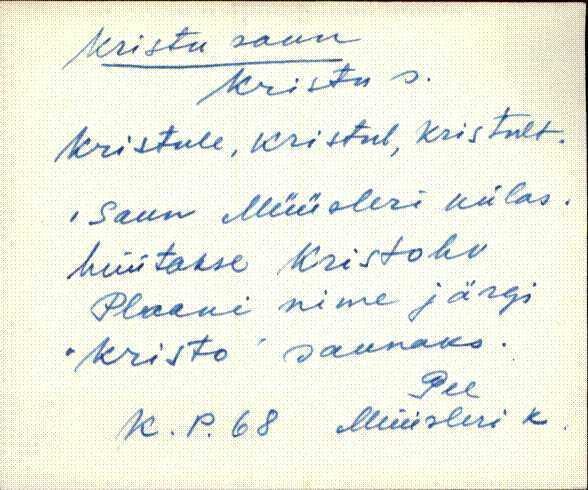 Kristu saun
Kristu s.
Kristule, Kristul, Kristult.
'Saun Müüsleri külas.
hüütakse Kristohv
Plaani nime järgi
"Kristo" saunaks.
Pee
K. P. 68 Müüsleri k.